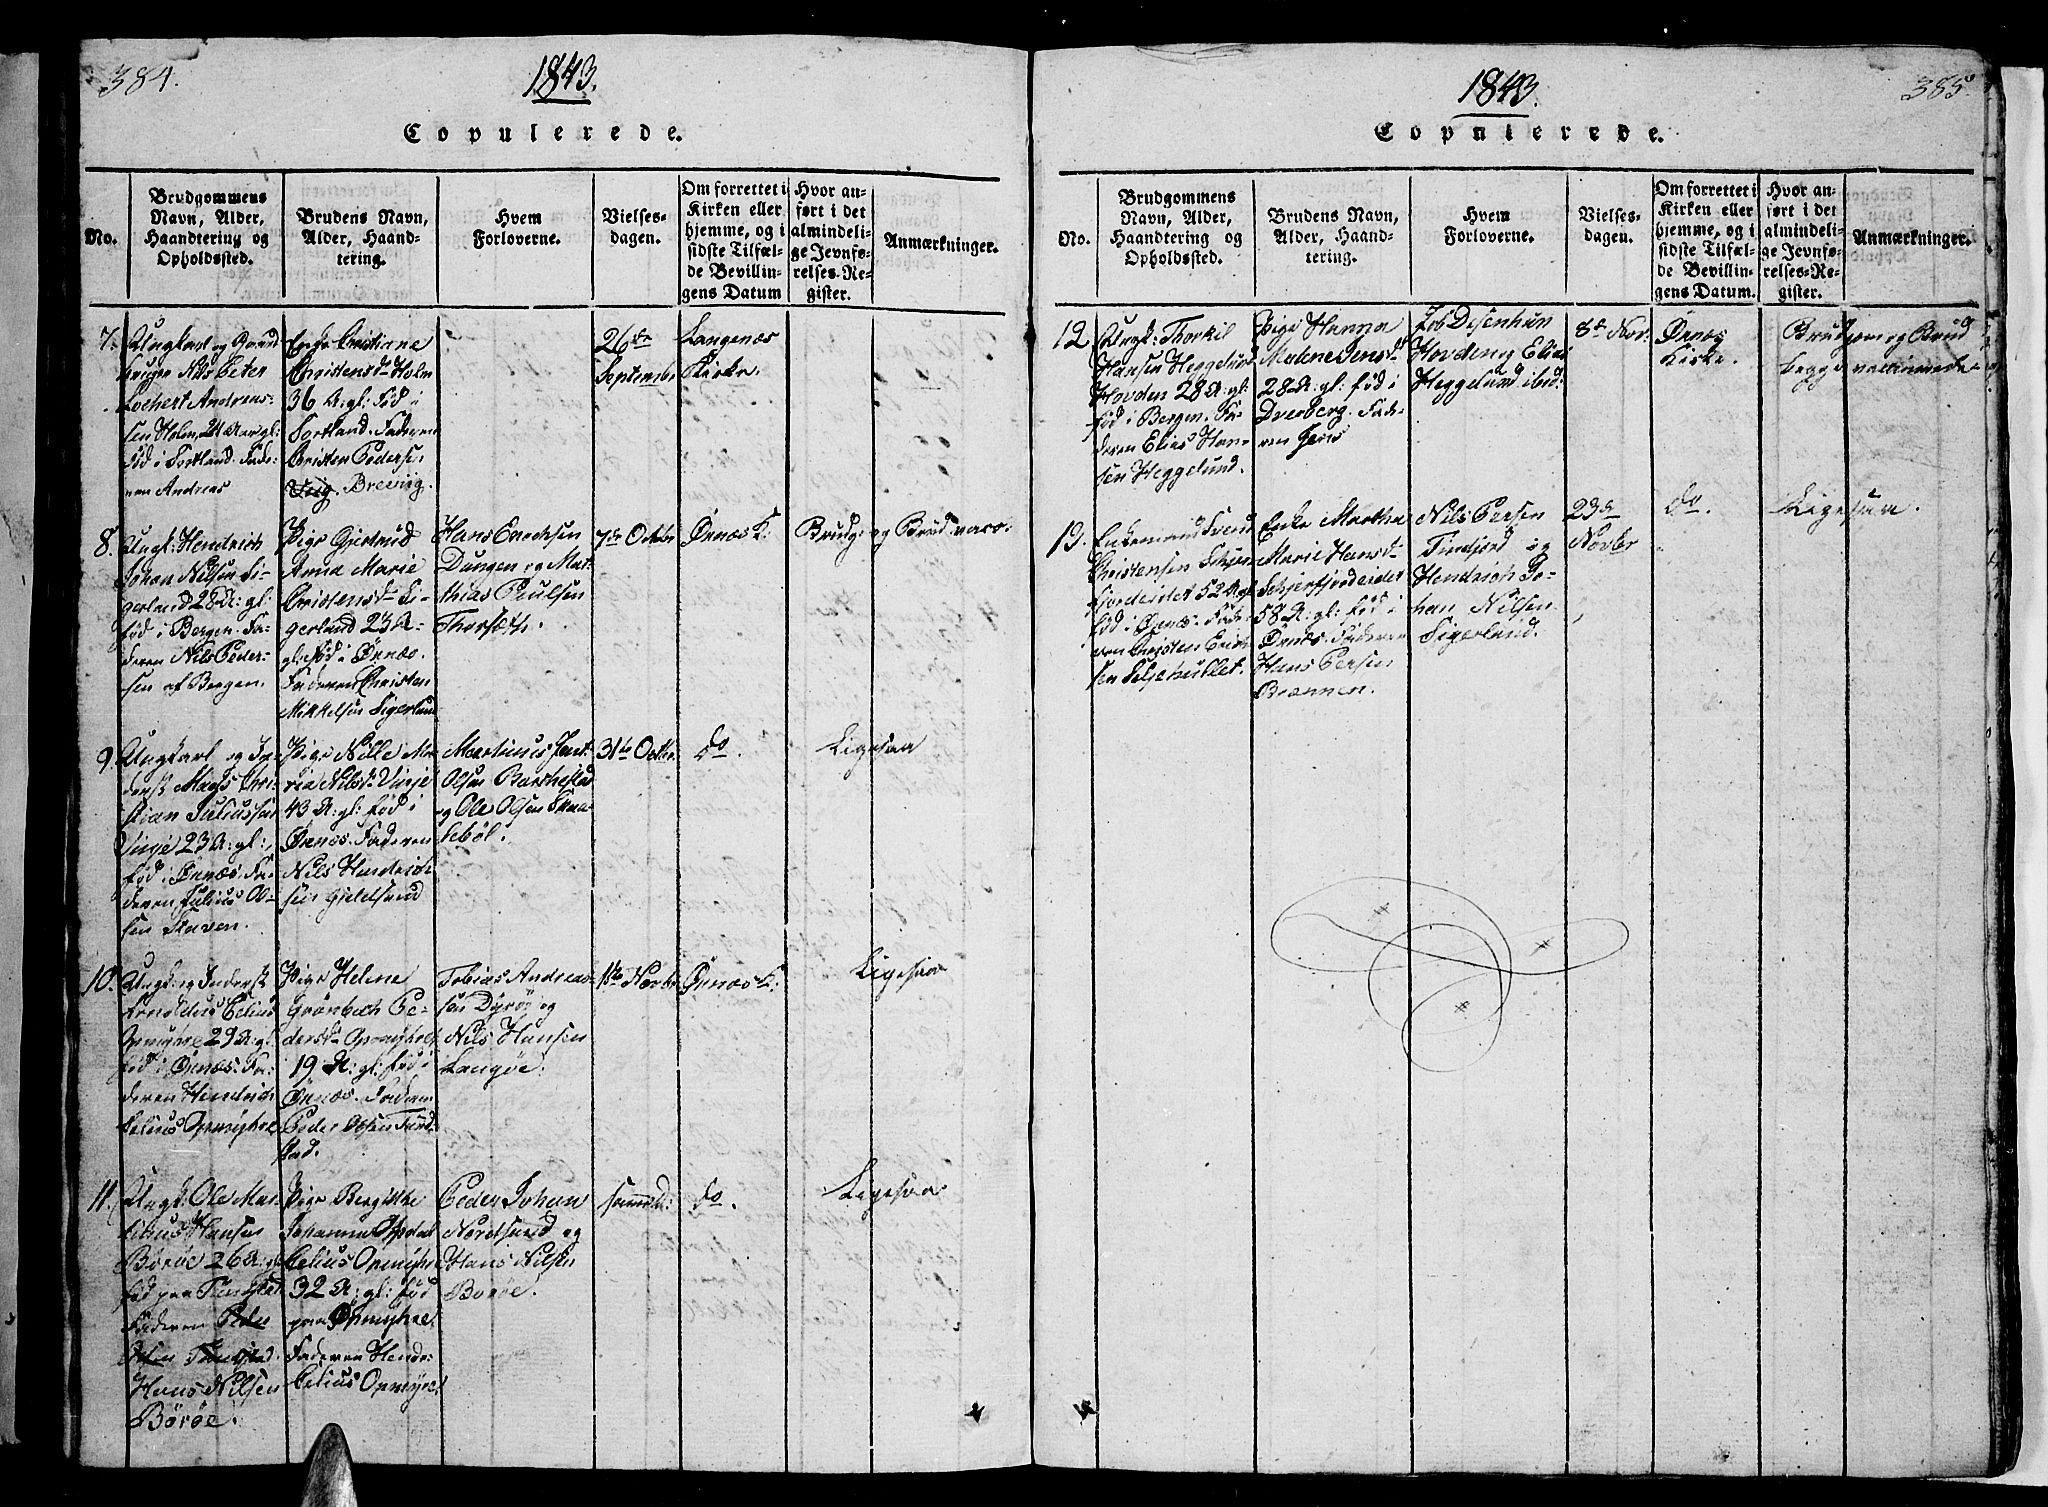 384.
1843.
Copulerede.
No.
Brudgommens
Navn, Alder,
Haandtering og
Opholdssted.
Brudens Navn,
Alder, Haand-
tering.
Hvem
Forloverne.
Vielses-
dagen.
Om forrettet i
Kirken eller
hjemme, og i
sidste Tilfæl-
de Bevillin-
gens Datum
Hvor an-
ført i det
almindeli-
ge Jevnfø-
relses-Re-
gister.
Anmærkninger.
7.
Ungkarl og Gaard
bruger Nils Peter
Lochert Andreas-
sen Holm, 24 Aar gl:
fød i Sortland. Fade-
ren Andreas
Enke Christiane
Christensdr Holm
36 A: gl: fød i
Sortland. Faderen
Christen Pedersen
Brevig.
26de
September
Langenæs
Kirke.
8.
Ungk: Hendrich
Johan Nilsen Si-
gerland 28 A: gl:
fød i Bergen. Fa-
deren Nils Peder-
sen af Bergen.
Pige Gjertrud
Anna Marie
Christensdr Si-
gerland 23 A:
gl: fød i Ørnæs.
Faderen Christen
Mikkelsen Sigerland
Hans Enochsen
Dungen og Mat-
thias Paulsen
Thorsæth.
7de Octbr
Ørnæs K:
Brudg: og Brud vacc:
9.
Ungkarl og In-
derst Mads Chri-
stian Juliussen
Vinje 23 A: gl:,
fød i Ørnæs. Fa-
deren Julius Ol-
sen Staven.
Pige Nille Ma-
ria Nilsdr Vinje
43 A: gl: fød i
Ørnæs. Faderen
Nils Hendrich-
sen Gjeldsand
Martinus Jent:
Olsen Barkestad
og Ole Olsen Skaa-
kebøl.
31te Octbr.
do.
Ligesaa
10.
Ungk: og Inderst
Arnoldus Celius
Opmyhre 29 A: gl.
fød i Ørnæs. Fa-
deren Hendrich
Celius Opmyhre
Pige Helene
Grønbech Pe-
dersdr Opmyhre
19 A: gl: fød i
Ørnæs. Faderen
Peder Olsen Tund-
stad.
Tobias Andreas-
sen Dyrøe og
Nils Hansen
Langøe.
1ste Novbr
Ørnæs K:
Ligesaa
11.
Ungk: Ole Mar-
Hansen
Børøe 26 A: gl
fød paa Tunstad
Faderen Peder
Olsen Tunstad.
Hans Nilsen
Børøe.
Pige Bergitthe
Johanna
Celius Opmyhre
32 A: gl: fød
paa Opmyhre
Faderen Hendr:
Celius Opmyre
Peder Johan
Nordsund og
Hans Nilsen
Børøe.
samme d:
do.
Ligesaa
1843.
385.
Copulerede.
No.
Brudgommens
Navn, Alder,
Haandtering og
Opholdssted.
Brudens Navn,
Alder, Haand-
tering.
Hvem
Forloverne.
Vielses-
dagen.
Om forrettet i
Kirken eller
hjemme, og i
sidste Tilfæl-
de Bevillin-
gens Datum.
Hvor an-
ført i det
almindeli-
ge Jevnfø-
relses-Re-
gister.
Anmærkninger.
12.
Ungk: Thorkil
Hansen Heggelund
Hovden 28 A: gl:
fød i Bergen. Fa-
deren Elias Han-
sen Heggelund.
Pige Hanna
Malene Jensdr
28 A: gl: fød i
Dverberg. Fade-
ren Jens
Job Disenthun
Hovden og Elias
Heggelund ibid:
8de Nov:
Ørnæs
Kirke.
Brudgom og Brud
begge vaccinerede
13.
Enkemand Svend
Christensen Skjær-
fjordeidet 52 A: gl
fød i Ørnæs. Fade-
ren Christen Erich-
sen Seljehullet.
Enke Martha
Marie Hansdr
Skjerfjordeidet
58 A: gl: fød i
Ørnæs. Faderen
Hans Persen
Brennen.
Nils Persen
Tindjord og
Hendrich Jo-
han Nilsen
Sigerland.
23de
Novbr
do.
Ligesaa.